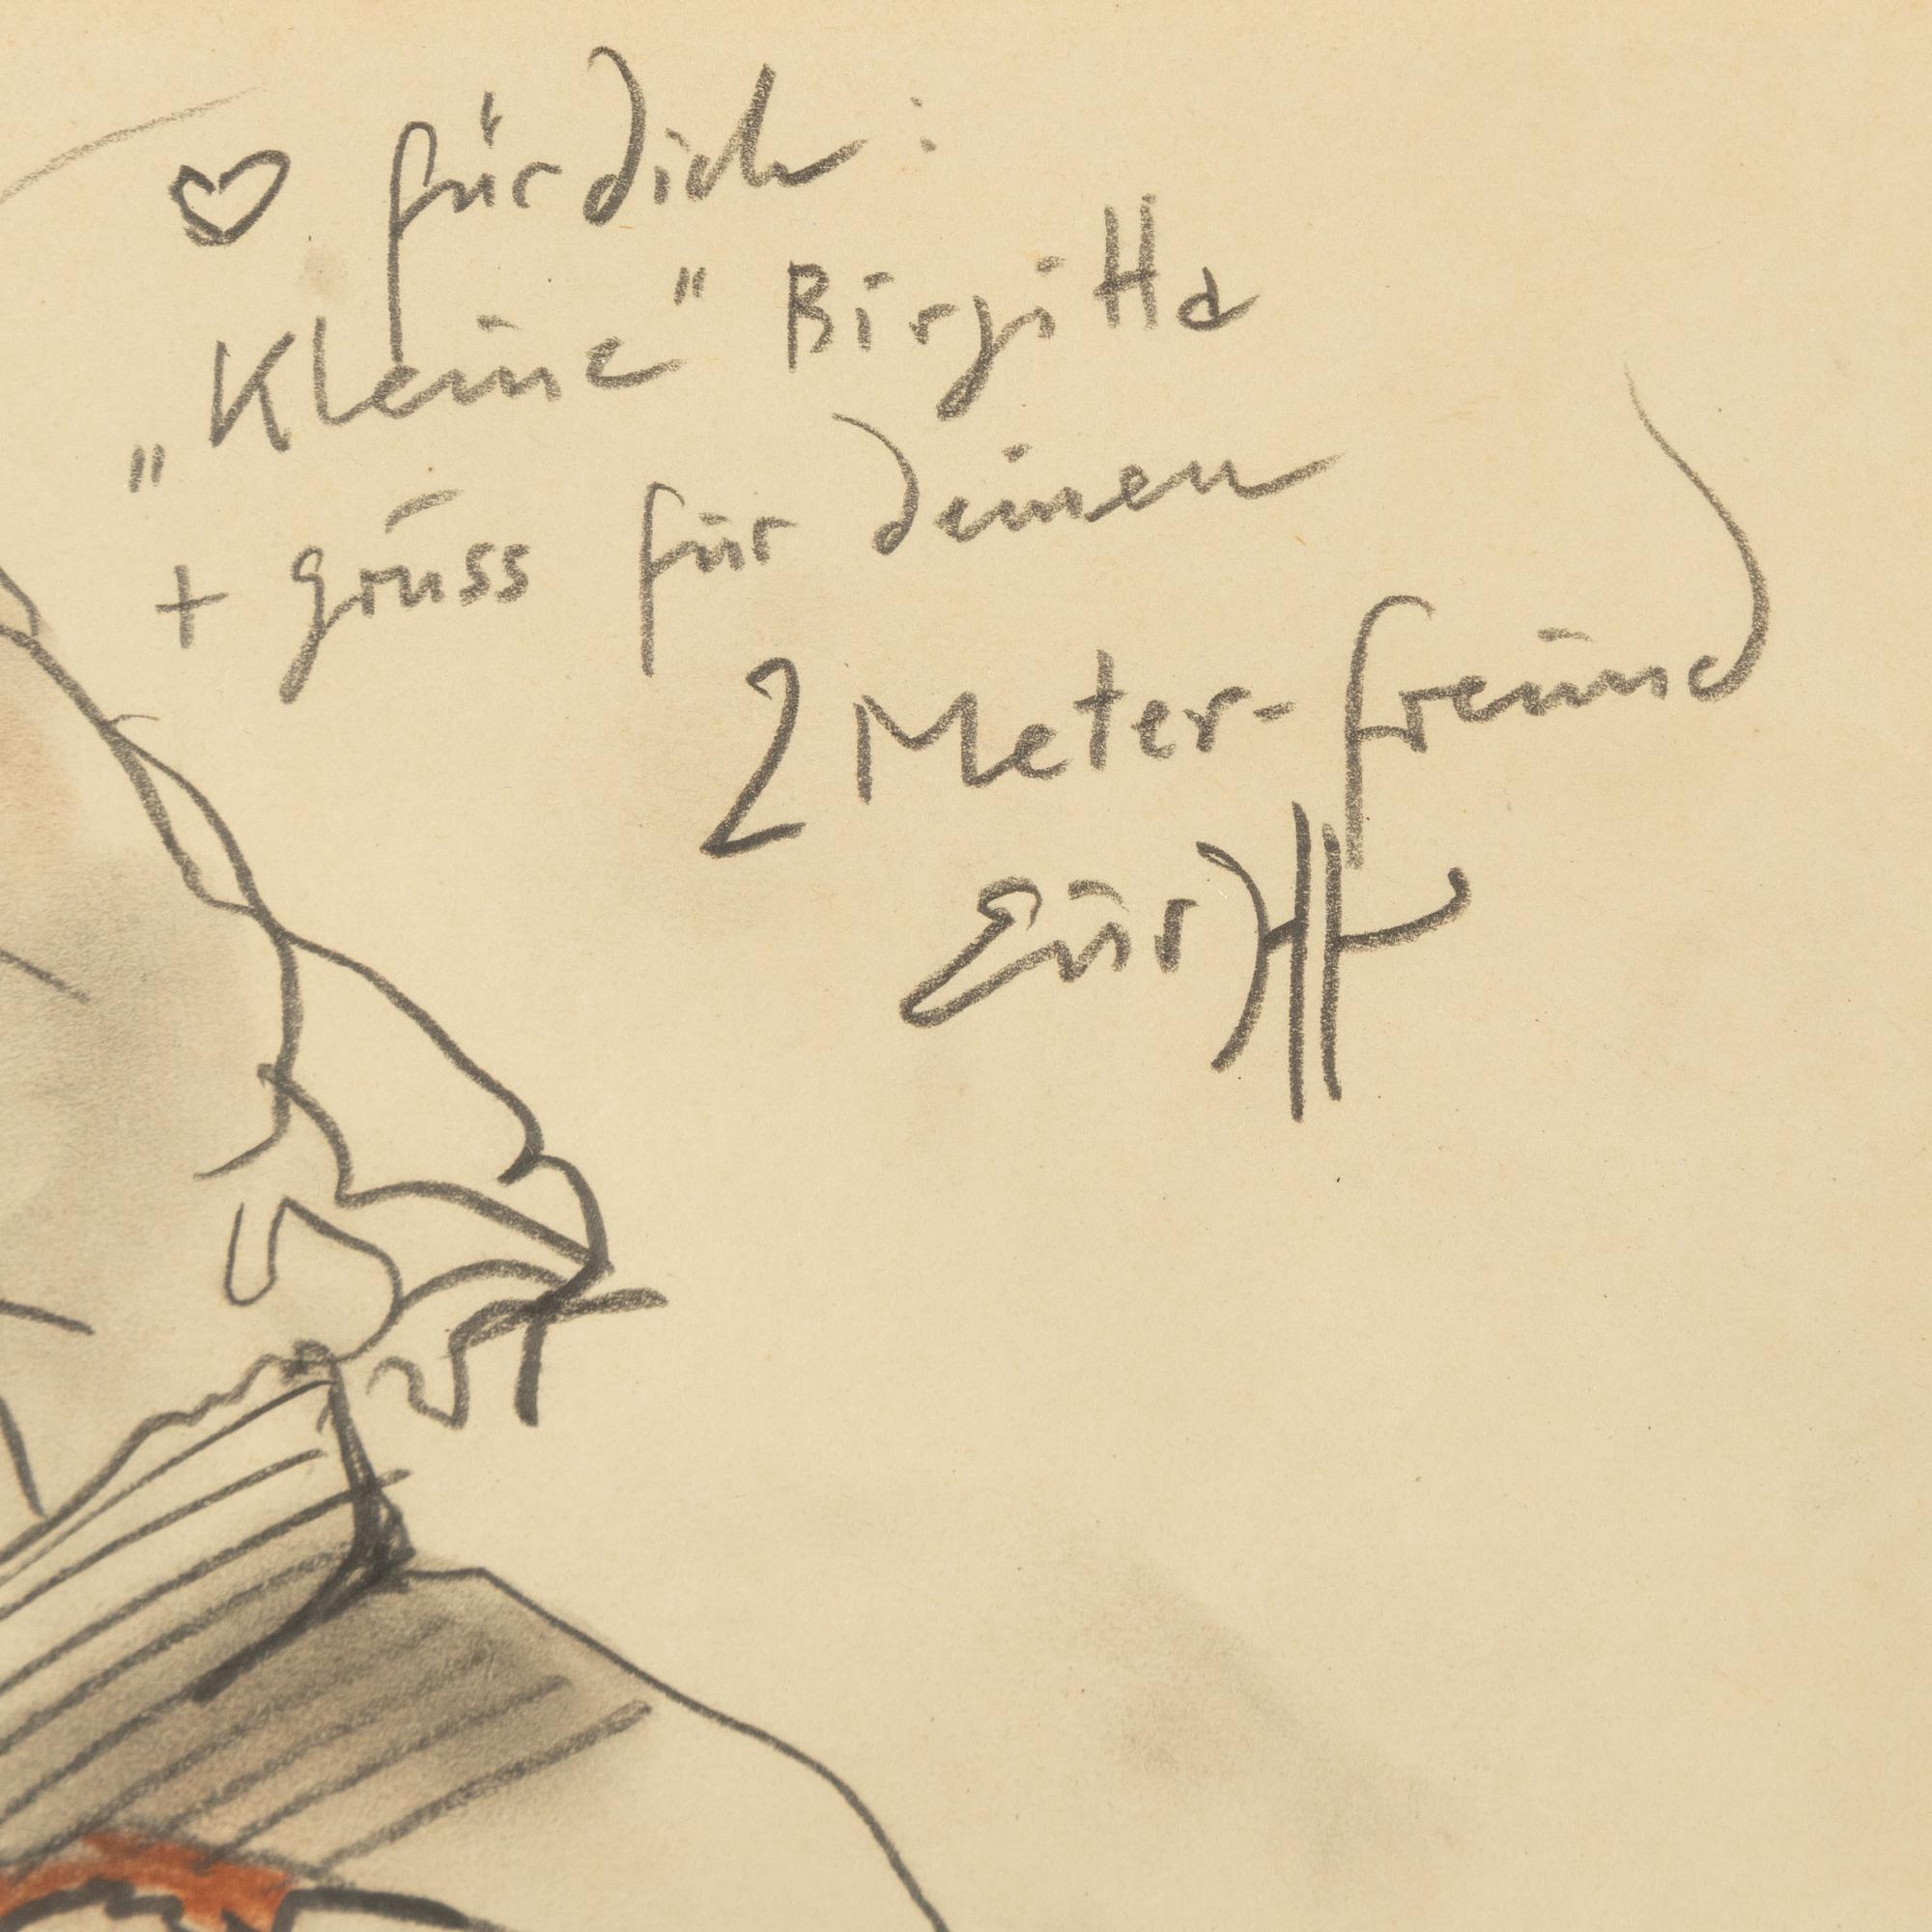 ♡ für dich:
„Kleine" Birgitta
+ grūss für deinen
2 Meter-freūnd
Eūr